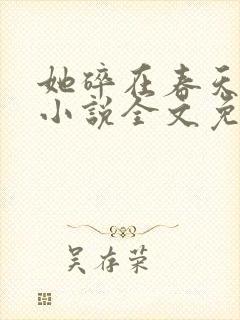 她碎在春天
小说全文免
吴存荣